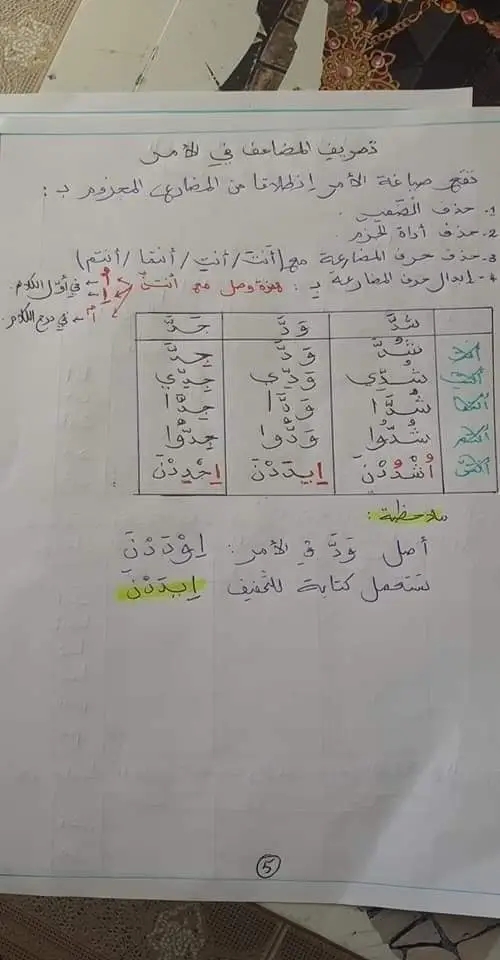 تصريف المضاعف في الأمر
تقع صياغة الأمر إنطلاقا من المضارع المجزوم بـ:
1. حذف الضمير.
2. حذف أداة الجزم
3. حذف حرف المضارعة مع (أنتَ / أنتِ / أنتما / أنتم)
4. إبدال حرف المضارعة بـ: همزة وصل مع أنتنّ أُ إِ ← في أوّل الكلام.
ٱ ← في درج الكلام.
شَدَّ وَدَّ جَدَّ
أنتَ شُدَّ وَدَّ جِدَّ
أنتِ شُدِّي وَدِّي جِدِّي
أنتما شُدَّا وَدَّا جِدَّا
أنتم شُدُّوا وَدُّوا جِدُّوا
أنتنّ اُشْدُدْنَ اِيدَدْنَ اِجْدِدْنَ
ملاحظة:
أصل وَدَّ في الأمر: اِوْدَدْنَ
تستعمل كتابة للتخفيف اِيدَدْنَ
5